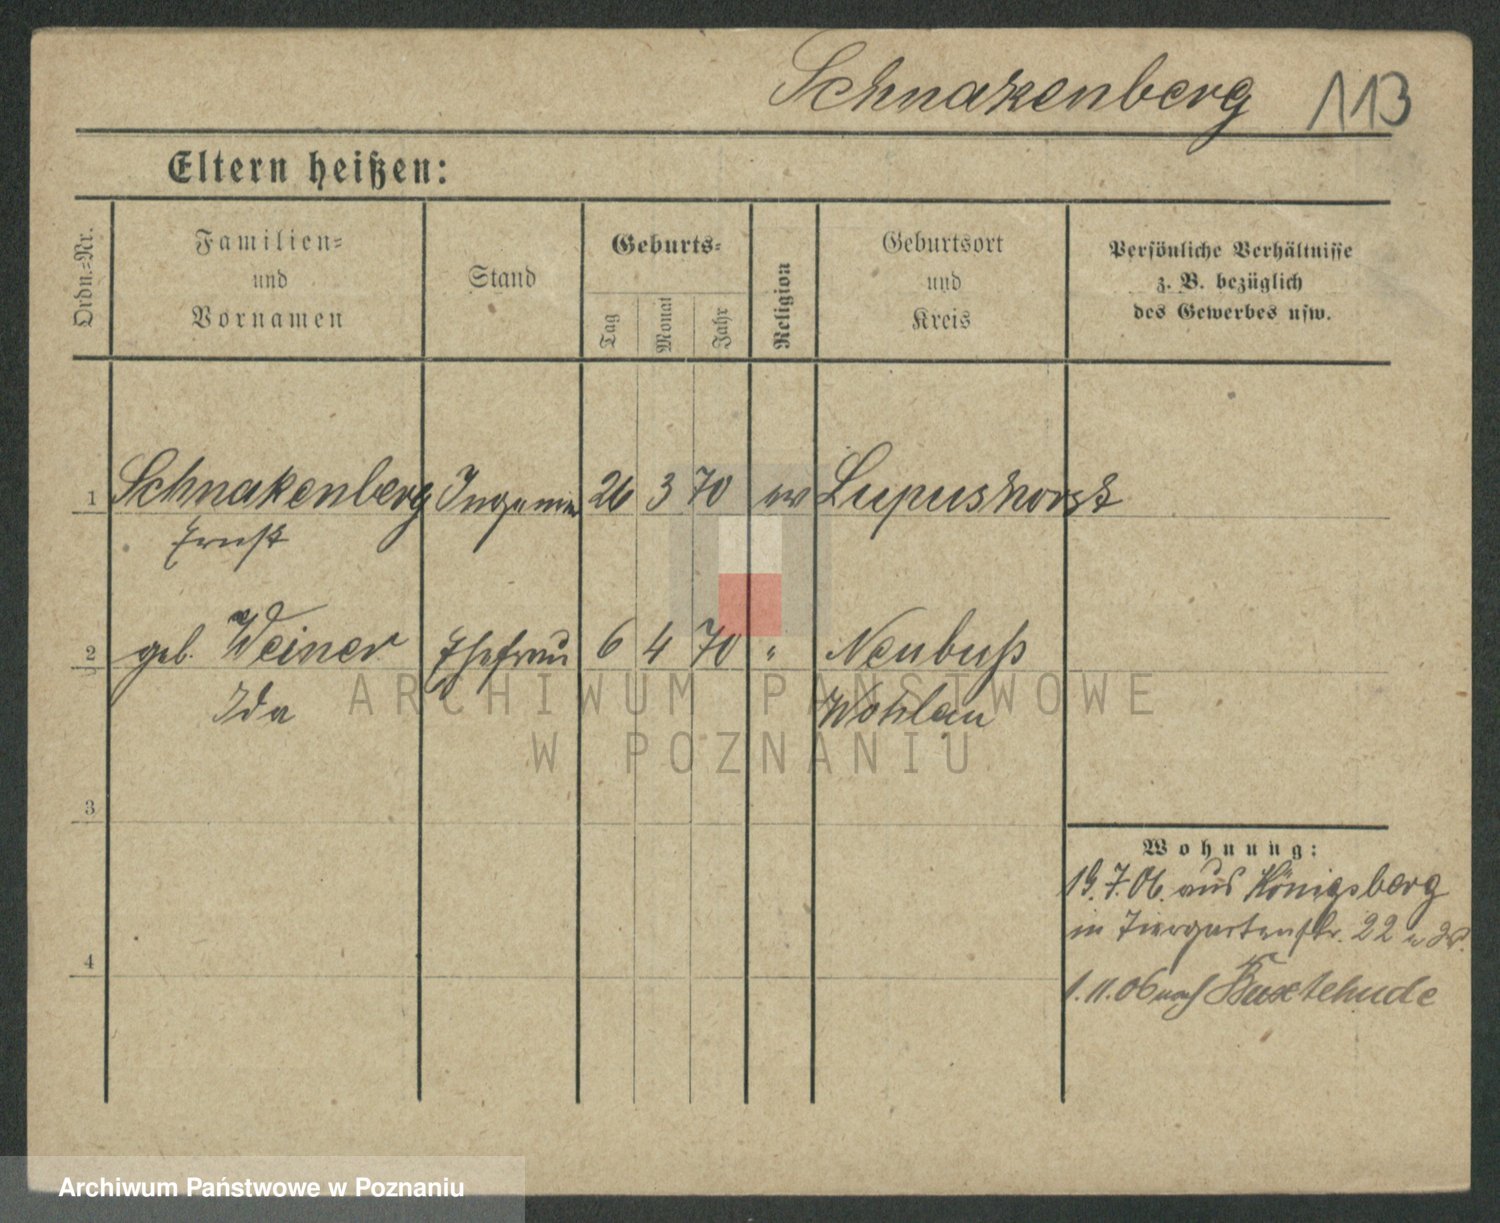 Schnakenberg 113
Eltern heißen:
Ordn.=Nr.
Familien=
und
Vornamen
Stand
Geburts=
Tag
Monat
Jahr
Religion
Geburtsort
und
Kreis
Persönliche Verhältnisse
z. B. bezüglich
des Gewerbes usw.
1 Schnakenberg 26 3 70 ev Lupushorst
Ernst
2 geb. Weiner Ehefrau 6 4 70 " Neubuß
Ida Wohlau
3
4
Wohnung:
7.06. aus Königsberg
in Tiergartenstr. 22
1.11.06 nach Buxtehude
ARCHIWUM PAŃSTWOWE
W POZNANIU
Archiwum Państwowe w Poznaniu